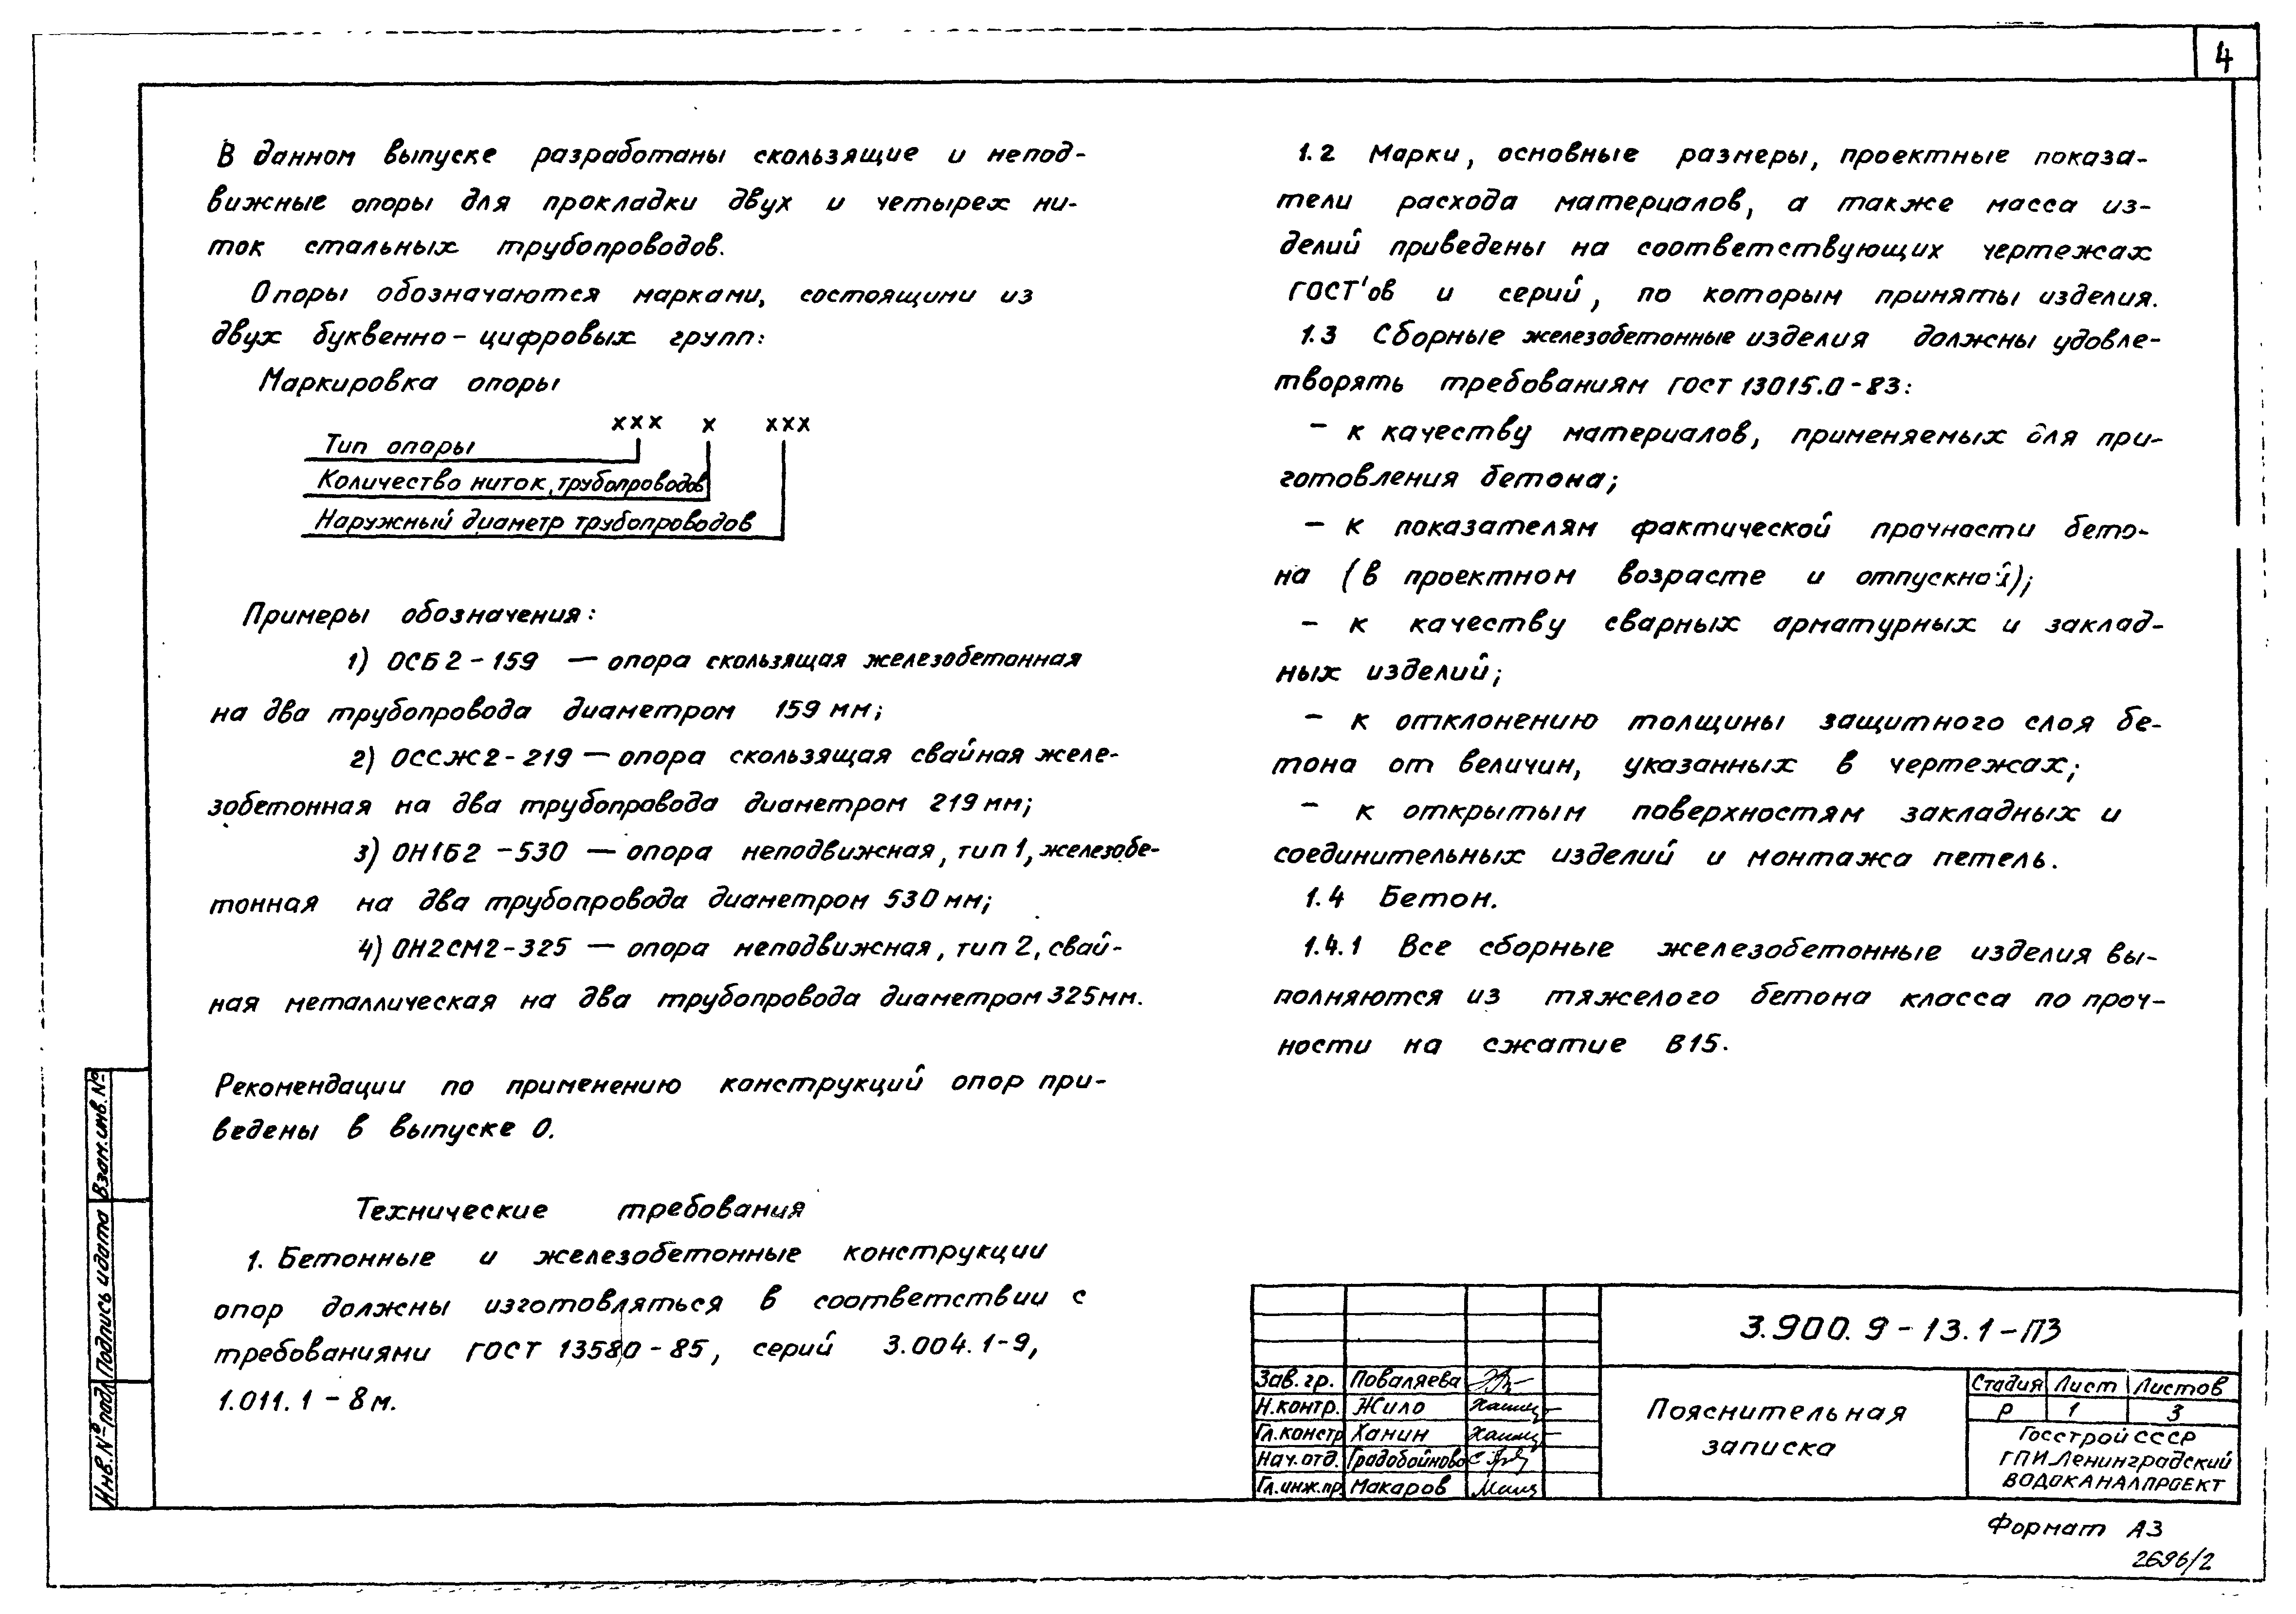 4
В данном выпуске разработаны скользящие и непод-
вижные опоры для прокладки двух и четырех ни-
ток стальных трубопроводов.
Опоры обозначаются марками, состоящими из
двух буквенно-цифровых групп:
Маркировка опоры
ххх х ххх
Тип опоры
Количество ниток, трубопроводов
Наружный диаметр трубопроводов
Примеры обозначения:
1) ОСБ2-159 — опора скользящая железобетонная
на два трубопровода диаметром 159 мм;
2) ОССЖ2-219 — опора скользящая свайная желе-
зобетонная на два трубопровода диаметром 219 мм;
3) ОН1Б2-530 — опора неподвижная, тип 1, железобе-
тонная на два трубопровода диаметром 530 мм;
4) ОН2СМ2-325 — опора неподвижная, тип 2, свай-
ная металлическая на два трубопровода диаметром 325мм.
Рекомендации по применению конструкций опор при-
ведены в выпуске 0.
Технические требования
1. Бетонные и железобетонные конструкции
опор должны изготовляться в соответствии с
требованиями ГОСТ 13580-85, серий 3.004.1-9,
1.011.1-8м.
1.2 Марки, основные размеры, проектные показа-
тели расхода материалов, а также масса из-
делий приведены на соответствующих чертежах
ГОСТ'ов и серий, по которым приняты изделия.
1.3 Сборные железобетонные изделия должны удовле-
творять требованиям ГОСТ 13015.0-83:
- к качеству материалов, применяемых для при-
готовления бетона;
- к показателям фактической прочности бето-
на (в проектном возрасте и отпускной);
- к качеству сварных арматурных и заклад-
ных изделий;
- к отклонению толщины защитного слоя бе-
тона от величин, указанных в чертежах;
- к открытым поверхностям закладных и
соединительных изделий и монтажа петель.
1.4 Бетон.
1.4.1 Все сборные железобетонные изделия вы-
полняются из тяжелого бетона класса по проч-
ности на сжатие В15.
Взам.инв.№
Подпись и дата
Инв.№ подл
3.900.9-13.1-ПЗ
Зав.гр. Поваляева
Н.контр. Жило
Гл.констр Ханин
Нач.отд. Градобойнова
Гл.инж.пр. Макаров
Пояснительная
записка
Стадия Лист Листов
Р 1 3
Госстрой СССР
ГПИ Ленинградский
ВОДОКАНАЛПРОЕКТ
Формат А3
2696/2